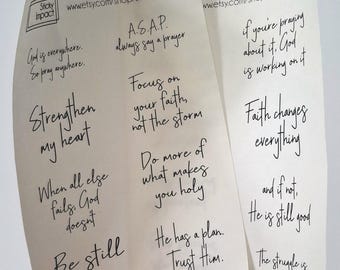 Sticky
Impact
www.etsy.com/shop
God is everywhere.
So pray anywhere.
Strengthen
my heart
When all else
fails, God
doesn't
Be still
A.S.A.P.
always say a prayer
Focus on
your faith,
not the storm
Do more of
what makes
you holy
He has a plan.
Trust Him.
www.etsy.com/shop
if you're praying
about it, God
is working on it
Faith changes
everything
and if not,
He is still good
The struggle is